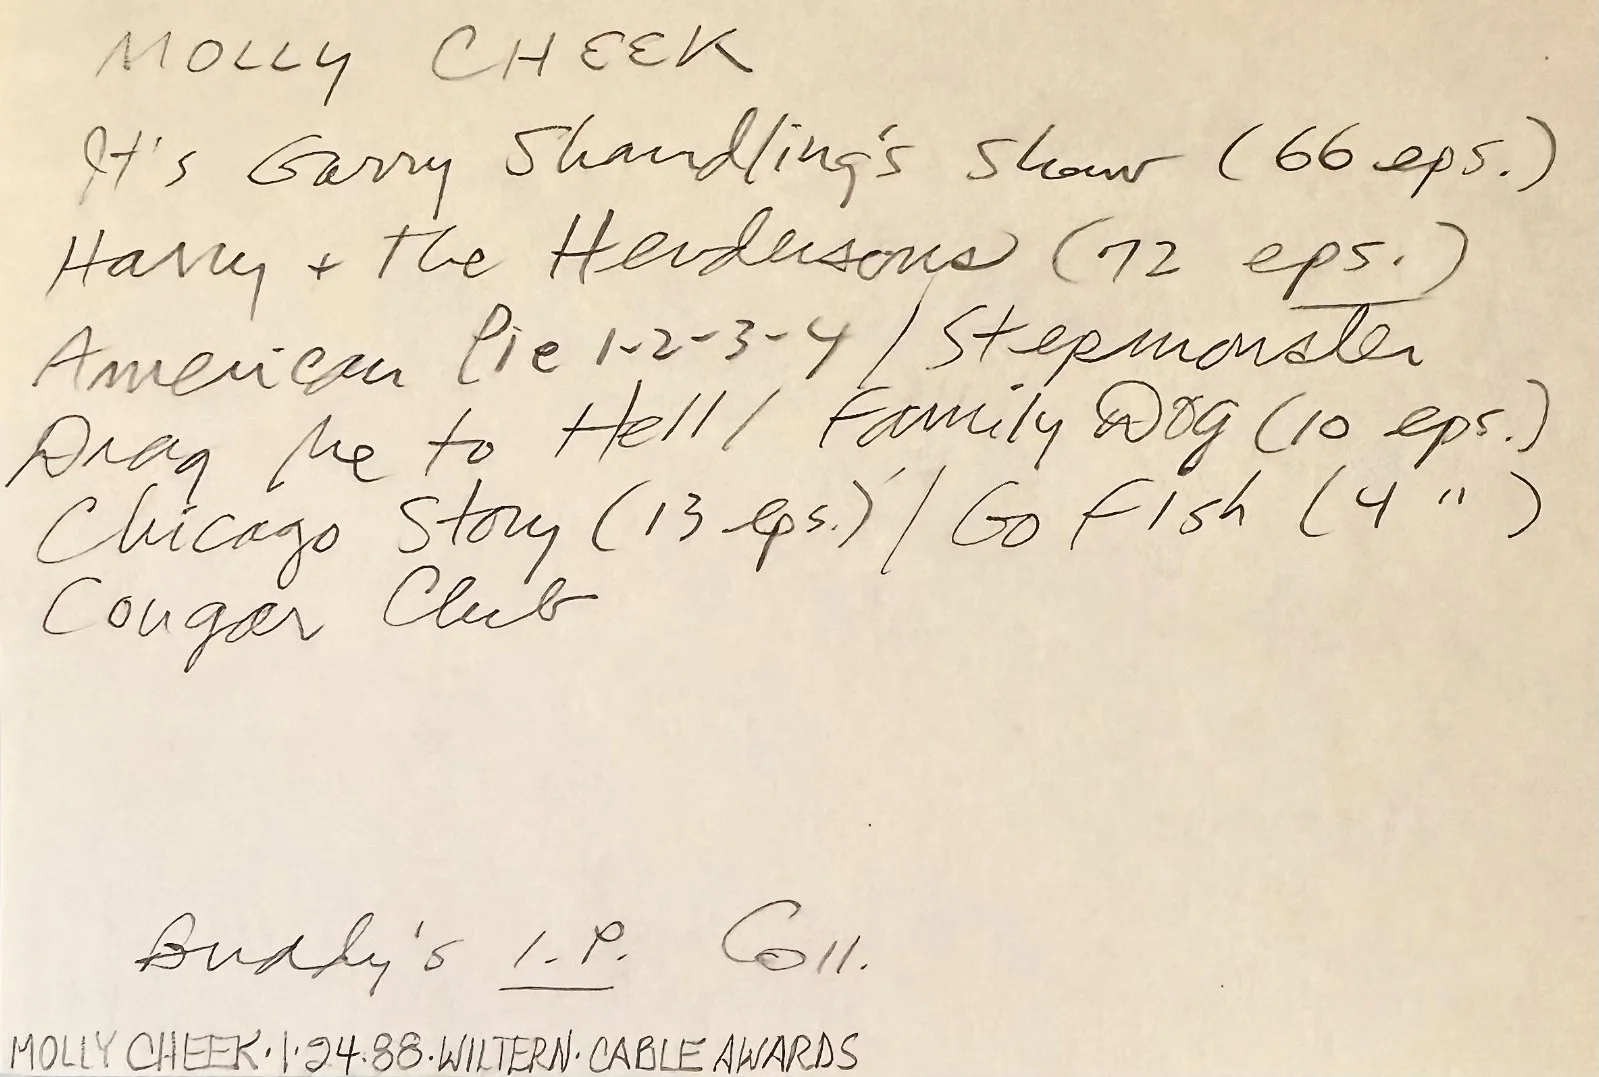 MOLLY CHEEK
It's Garry Shandling's Show (66 eps.)
Harry + the Hendersons (72 eps.)
American Pie 1-2-3-4 / Stepmonster
Drag Me to Hell / Family Dog (10 eps.)
Chicago Story (13 eps.) / Go Fish (4 ")
Cougar Club
Buddy's I.P. Coll.
MOLLY CHEEK · 1·24·88 · WILTERN · CABLE AWARDS